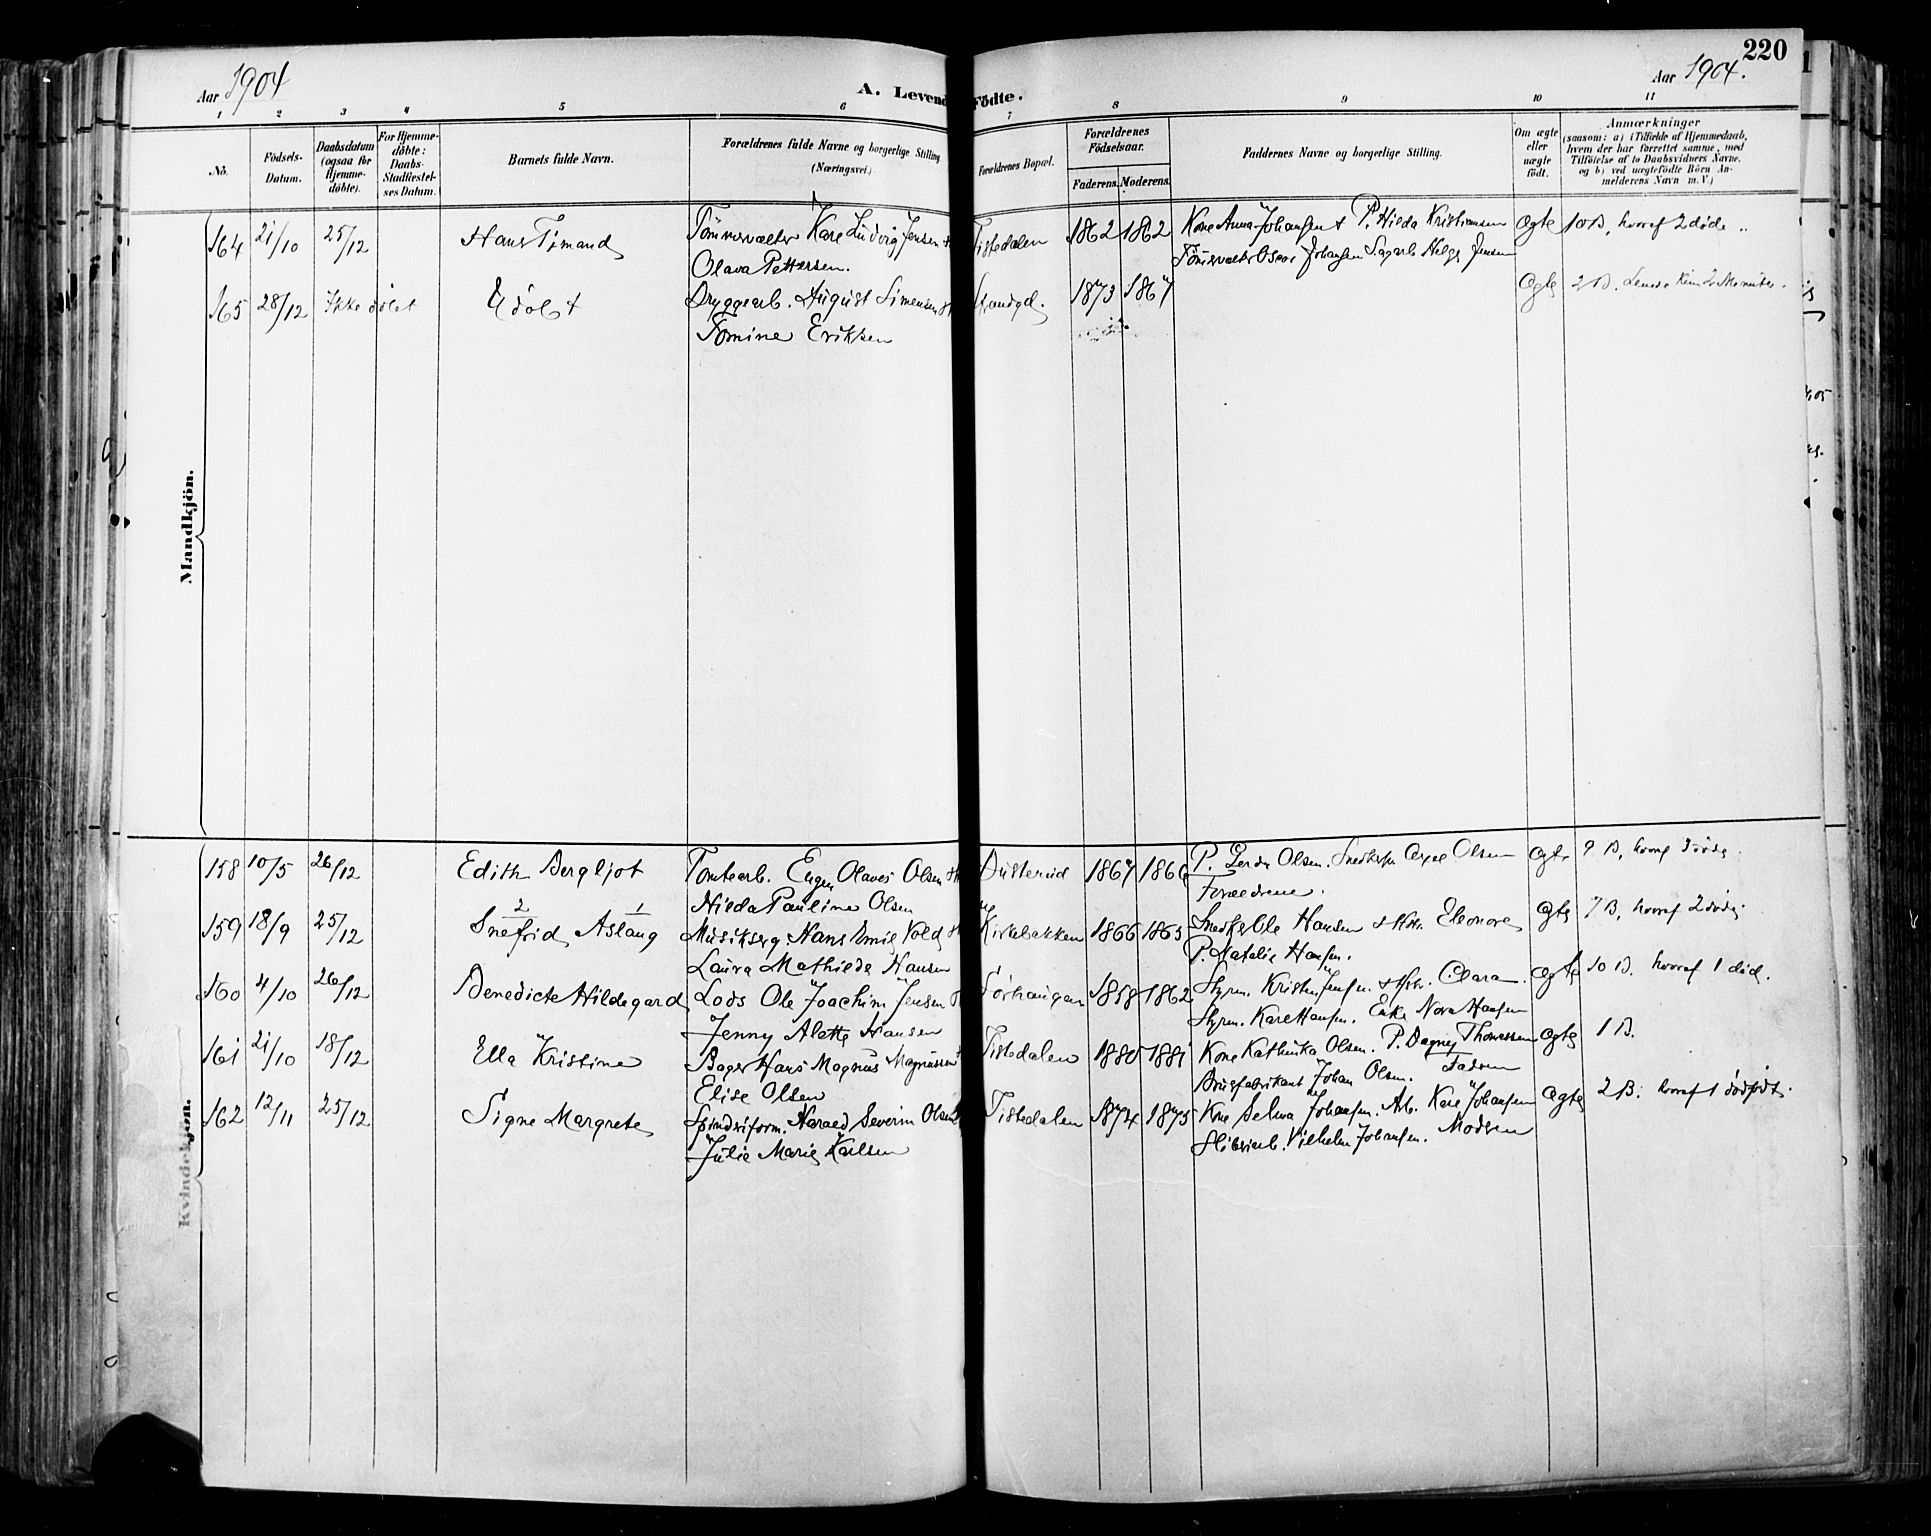 220
Aar 1904
A. Levende Födte.
Aar 1904.
1 2 3 4 5 6 7 8 9 10 11
No. Födsels-Datum. Daabsdatum (ogsaa for Hjemme-döbte). For Hjemme-döbte: Daabs-Stadfestel-ses Datum. Barnets fulde Navn. Forældrenes fulde Navne og borgerlige Stilling (Næringsvei.) Forældrenes Bopæl. Forældrenes Födselsaar. Faderens. Moderens. Faddernes Navne og borgerlige Stilling. Om ægte eller uægte födt. Anmærkninger (saasom: a) i Tilfælde af Hjemmedaab, hvem der har forrettet samme, med Tilföielse af to Daabsvidners Navne, og b) ved uægtefödte Börn An-melderens Navn m. V.)
Mandkjön.
164 21/10 25/12 Hans Timand Karl Ludvig Jensen Tistedalen 1862 1862 Kone Anna Johansen P. Hilda Kristiansen Ægte 10 B, hvoraf 2 døde
Olava Pettersen. Oscar Johansen Helge Jensen
165 28/12 Ikke döbt Udöbt Bryggearb. August Simensen Strandgd. 1873 1867 Ægte 2 B. Levede kun 2 Minuter.
Tomine Eriksen
Kvindekjön.
158 10/5 26/12 Edith Bergljot Tomtearb. Olaves Olsen 1867 1866 P. Gerda Olsen. Olsen Ægte 9 B, hvoraf 3 døde.
Hilda Pauline Olsen Forældrene.
2 1
159 18/9 25/12 Snefrid Aslaug Hans Emil Vold Kirkebakken 1866 1865 Snedker Ole Hansen Eleonore Ægte 7 B, hvoraf 2 døde
Laura Mathilde Hansen P. Natalie Hansen.
160 4/10 26/12 Benedicte Hildegard Lods Ole Joachim Jensen 1858 1862 Styrm. Jensen. Clara. Ægte 10 B. hvoraf 1 død.
Jenny Alette Hansen Styrm. Karl Hansen. Enke Nora Hansen
161 21/10 18/12 Ella Kristine Bager Hans Magnus Magnussen Tistedalen 1880 1881 Kone Kathinka Olsen. P. Dagny Thomassen Ægte 1 B.
Elise Olsen Brusfabrikant Johan Olsen. Faderen
162 12/11 25/12 Signe Margrete Harald Severin Olsen Tistedalen 1874 1875 Kone Selma Johansen. Arb. Karl Johansen Ægte 2 B. hvoraf 1 dødfødt.
Julie Marie Karlsen Sliberiarb. Vilhelm Johansen. Modren